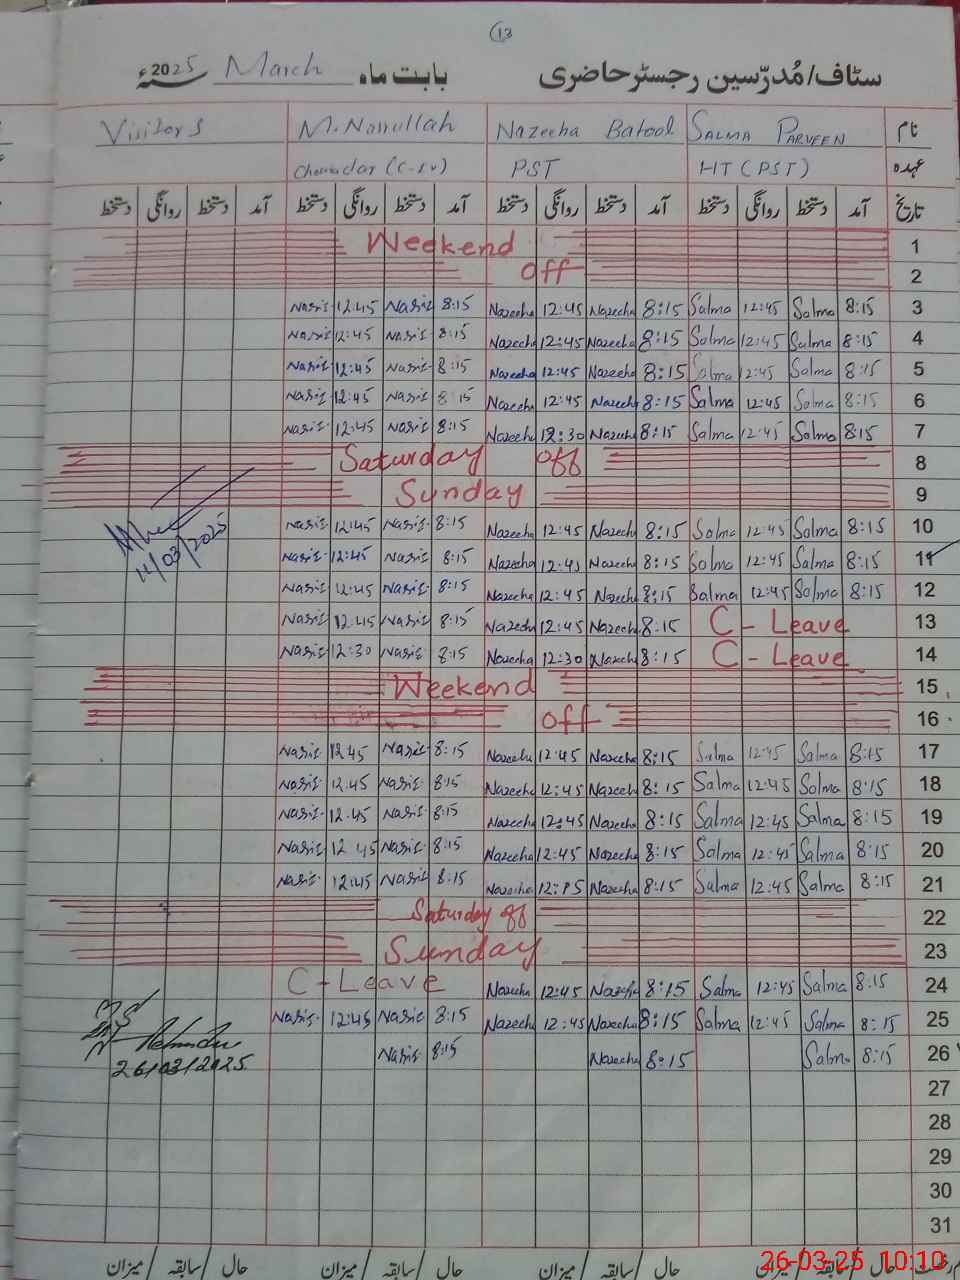 13
سٹاف/مُدرّسین رجسٹر حاضری بابت ماہ March 2025ء
نام SALMA PARVEEN Nazeeha Batool M. Nasrullah Visitors
عہدہ HT (PST) PST (C-IV)
تاریخ آمد دستخط روانگی دستخط آمد دستخط روانگی دستخط آمد دستخط روانگی دستخط آمد دستخط روانگی دستخط
1 Weekend
2 Off
3 8:15 Salma 12:45 Salma 8:15 Nazeeha 12:45 Nazeeha 8:15 Nasir 12:45 Nasir
4 8:15 Salma 12:45 Salma 8:15 Nazeeha 12:45 Nazeeha 8:15 Nasir 12:45 Nasir
5 8:15 Salma 12:45 Salma 8:15 Nazeeha 12:45 Nazeeha 8:15 Nasir 12:45 Nasir
6 8:15 Salma 12:45 Salma 8:15 Nazeeha 12:45 Nazeeha 8:15 Nasir 12:45 Nasir
7 8:15 Salma 12:45 Salma 8:15 Nazeeha 12:30 Nazeeha 8:15 Nasir 12:45 Nasir
8 Saturday Off
9 Sunday
10 8:15 Salma 12:45 Salma 8:15 Nazeeha 12:45 Nazeeha 8:15 Nasir 12:45 Nasir
11 8:15 Salma 12:45 Salma 8:15 Nazeeha 12:45 Nazeeha 8:15 Nasir 12:45 Nasir 11/03/2025
12 8:15 Salma 12:45 Salma 8:15 Nazeeha 12:45 Nazeeha 8:15 Nasir 12:45 Nasir
13 C - Leave 8:15 Nazeeha 12:45 Nazeeha 8:15 Nasir 12:45 Nasir
14 C - Leave 8:15 Nazeeha 12:30 Nazeeha 8:15 Nasir 12:30 Nasir
15 Weekend
16 Off
17 8:15 Salma 12:45 Salma 8:15 Nazeeha 12:45 Nazeeha 8:15 Nasir 12 45 Nasir
18 8:15 Salma 12:45 Salma 8:15 Nazeeha 12:45 Nazeeha 8:15 Nasir 12.45 Nasir
19 8:15 Salma 12:45 Salma 8:15 Nazeeha 12:45 Nazeeha 8:15 Nasir 12.45 Nasir
20 8:15 Salma 12:45 Salma 8:15 Nazeeha 12:45 Nazeeha 8:15 Nasir 12 45 Nasir
21 8:15 Salma 12:45 Salma 8:15 Nazeeha Nazeeha 8:15 Nasir 12:45 Nasir
22 Saturday off
23 Sunday
24 8:15 Salma 12:45 Salma 8:15 Nazeeha 12:45 Nazeeha C - Leave
25 8:15 Salma 12:45 Salma 8:15 Nazeeha 12:45 Nazeeha 8:15 Nasir 12:45 Nasir
26 8:15 Salma 8:15 Nazeeha 8:15 Nasir 26/03/2025
27
28
29
30
31
حال / سابقہ / میزان حال / سابقہ / میزان حال / سابقہ / میزان
26-03-25 10:10